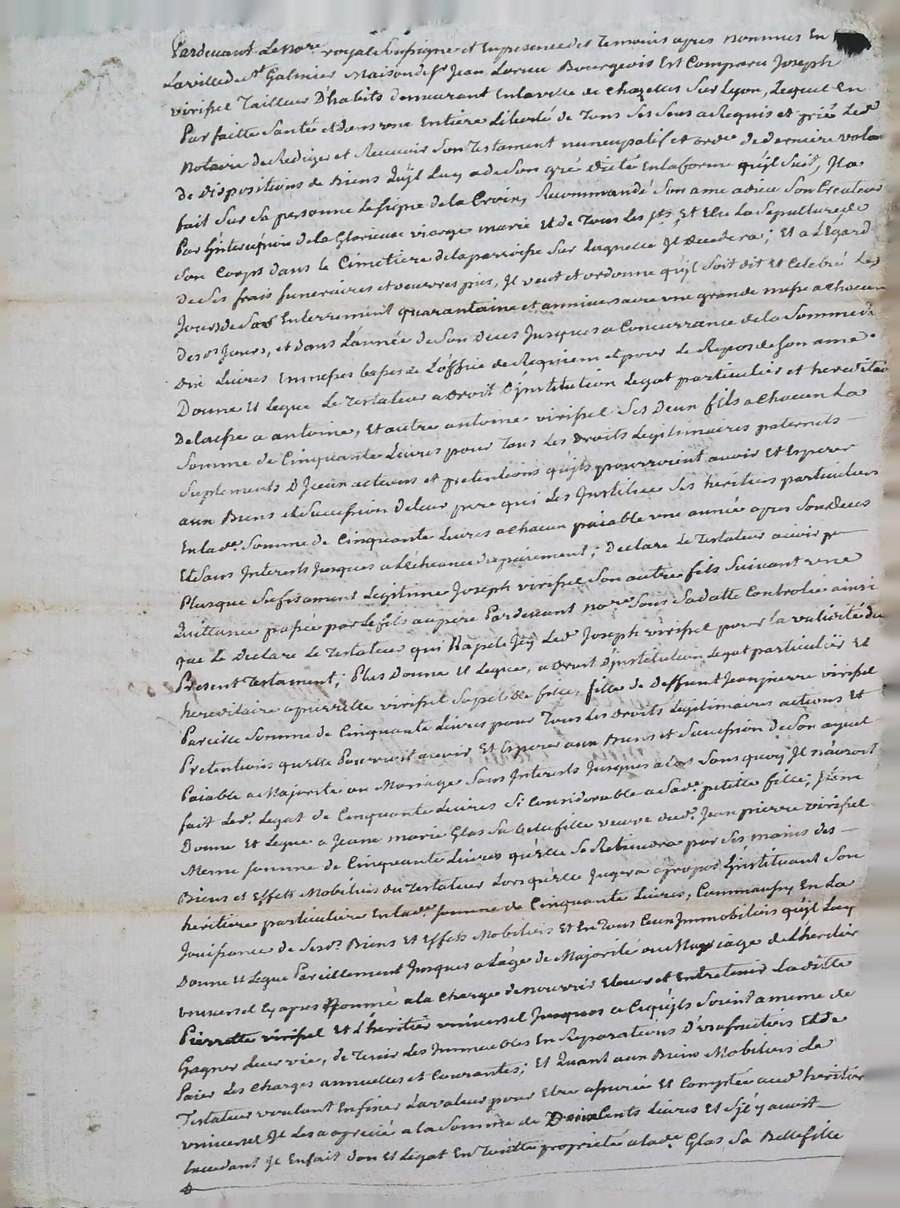 Pardevant Le Nore royal soussigne et En presence des Temoins apres nommes En
La ville de st Galmier Maison de sr Jean Bourgeois Est Comparu Joseph
virissel Tailleur D'habits demeurant En la ville de chazelles Sur Lyon, Lequel En
Parfaitte Santé et dans une Entiere Liberté de Tous Ses Sens a Requis et prié Led
Notaire de Rediger et Recevoir Son Testament nuncupatif et ordre de derniere volon
de Dispositions de Biens Qu'il Luy a de Son gré dicté En la forme qu'il Suit, Il a
fait Sur Sa personne Le Signe de la Croix, Recommandé Son ame a dieu Son Createur
Par L'intercession de la Glorieuse vierge marie Et de Tous Les sts, Et Elu La Sepulture de
Son Corps dans le Cimetiere de la parroisse Sur Laquelle Il decedera; Et a L'Egard
de Ses frais funeraires et oeuvres pies, Il veut et ordonne qu'il Soit dit et Celebré Les
Jours de Son Enterrement quarantaine et anniversaire une grande messe a chacun
des ds Jours, et dans L'année de Son deces Jusques a Concurrance de la Somme de
Dix Livres En messes basses de L'office de Requiem et pour Le Repos de Son ame.
Donne Et Legue Le Testateur a droit d'institution Legat particulier et hereditai
a antoine, Et autre antoine virissel Ses Deux fils a chacun La
Somme de Cinquante Livres pour Tous Les Droits Legitimaires paternels
Suplements D'Iceux actions et pretentions qu'ils pourroint avoir et Esperer
aux Biens et Succession de Leur pere qui Les Institue Ses heritiers particuliers
En lade Somme de Cinquante Livres a chacun païable une année apres Son deces
Et Sans Interests Jusques a L'echeance du païement; Declare Le Testateur avoir
Plusque Sufisament Legitimé Joseph virissel Son autre fils Suivant une
Quittance passée par Le fils au pere Pardevant nore Sous Sa datte Controlée ainsi
que Le Declare Le Testateur qui Rapele Icy Led Joseph virissel pour la validité du
Present Testament; Plus Donne Et Legue, a droit d'institution Legat particulier Et
hereditaire a pierrette virissel Sa petitte fille, fille de Deffunt Jean pierre virissel
Pareille Somme de Cinquante Livres pour Tous Les droits Legitimaires actions Et
Pretentions qu'elle Pourroit avoir Et Esperer aux Biens et Succession de Son ayeul
Païable a Majorité ou Mariage Sans Interests Jusques a Lors Sans quoy Il n'auroit
fait Led. Legat de Cinquante Livres Si Considerable a Sade petitte fille; Item
Donne Et Legue a Jeane marie Glas Sa Bellefille veuve dud. Jean pierre virissel
Meme Somme de Cinquante Livres qu'elle Se Retiendra par Ses mains des
Biens et Effets Mobiliers du Testateur Lors qu'elle Jugera a propos L'instituant Son
heritiere particuliere En lade Somme de Cinquante Livres, Comme aussy En La
Joüissance de Sesds Biens Et Effets Mobiliers Et En Tous Ceux Immobiliers qu'il Luy
Donne Et Legue Pareillement Jusques a L'age de Majorité ou Mariage de L'heritier
universel Cy apres Nommé a la charge de nourrir Elever et Entretenir Laditte
Pierrette virissel Et L'heritier universel Jusques a Ce qu'ils Soint a meme de
Gagner Leur vie, de Tenir Les Immeubles En Reparations D'usufruitiers Et de
Païer Les Charges annuelles et Courantes; Et Quant aux Biens Mobiliers Le
Testateur voulant En fixer La valeur pour Etre assurée Et Comptée aud heritier
universel Il Les a apreciés a la Somme de Deux Cents Livres Et S'il y avoit
Excedant Il En fait don Et Legat En Toutte proprieté a lade Glas Sa Bellefille